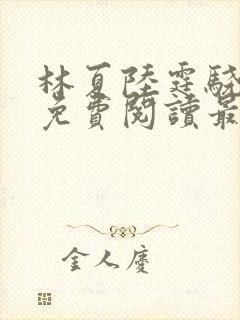 林夏陸霆驍
免費閱讀最
金人慶